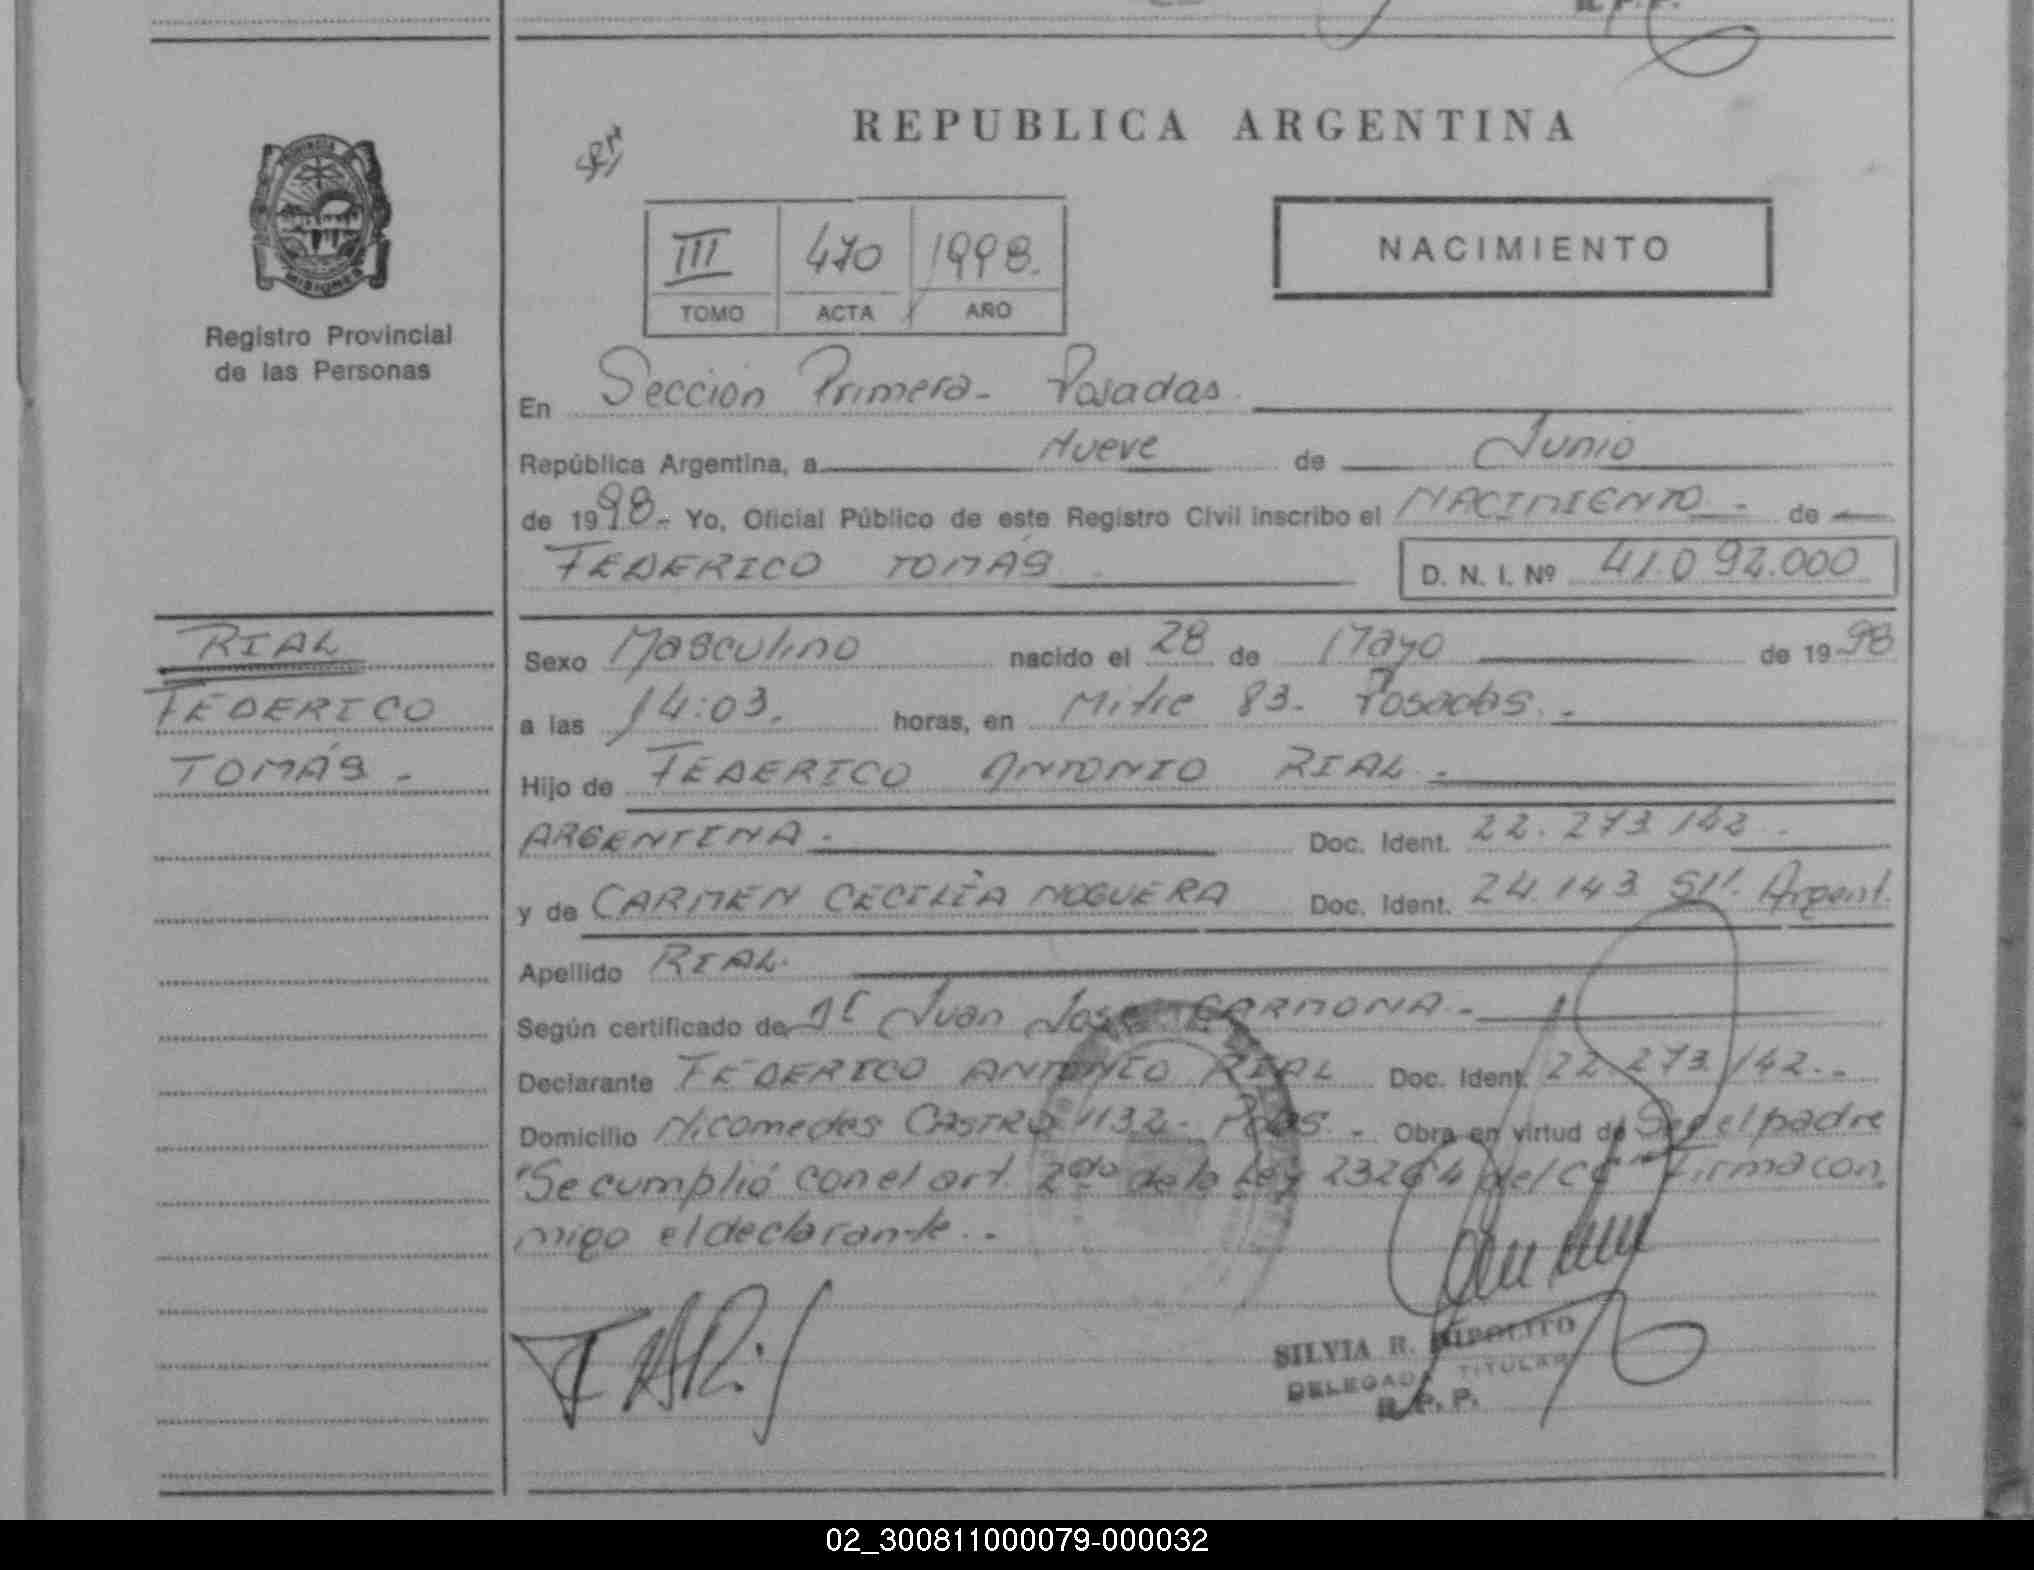 R. P. P.
REPUBLICA ARGENTINA
PROVINCIA DE
MISIONES
Registro Provincial
de las Personas
III 470 1998.
TOMO ACTA AÑO
NACIMIENTO
En Sección Primera - Posadas.
República Argentina, a Nueve de Junio
de 1998.- Yo, Oficial Público de este Registro Civil inscribo el NACIMIENTO - de
FEDERICO TOMÁS D. N. I. Nº 41.092.000
RIAL
FEDERICO
TOMÁS -
Sexo Masculino nacido el 28 de Mayo de 1998
a las 14:03. horas, en Mitre 83. Posadas. -
Hijo de FEDERICO ANTONIO RIAL -
ARGENTINA - Doc. Ident. 22.273.142 -
y de CARMEN CECILIA NOGUERA Doc. Ident. 24.143 511. Argent.
Apellido RIAL.
Según certificado de Juan José CARMONA -
Declarante FEDERICO ANTONIO RIAL Doc. Ident. 22.273.142. -
Domicilio Nicomedes CASTRO 1132 - Pdas. - Obra en virtud de Ser el padre
"Se cumplió con el art. 2do de la Ley 23264 del CC" Firma con
migo el declarante. -
SILVIA R. HIPOLITO
DELEGADA TITULAR
R. P. P.
02_300811000079-000032